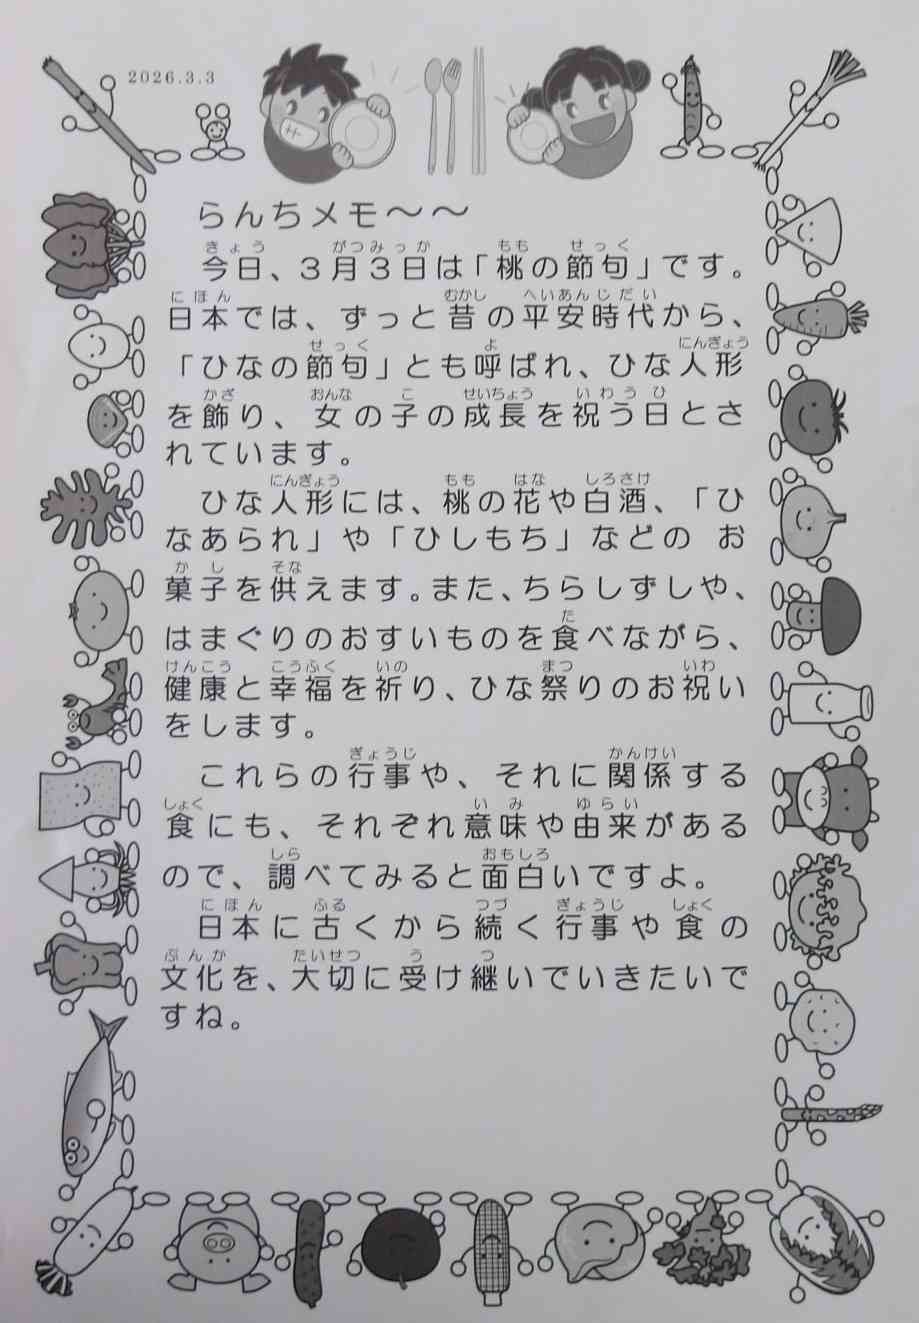 2026.3.3
らんちメモ～～
今日、3月3日は「桃の節句」です。
日本では、ずっと昔の平安時代から、
「ひなの節句」とも呼ばれ、ひな人形
を飾り、女の子の成長を祝う日とさ
れています。
ひな人形には、桃の花や白酒、「ひ
なあられ」や「ひしもち」などの お
菓子を供えます。また、ちらしずしや、
はまぐりのおすいものを食べながら、
健康と幸福を祈り、ひな祭りのお祝い
をします。
これらの行事や、それに関係する
食にも、それぞれ意味や由来がある
ので、調べてみると面白いですよ。
日本に古くから続く行事や食の
文化を、大切に受け継いでいきたいで
すね。